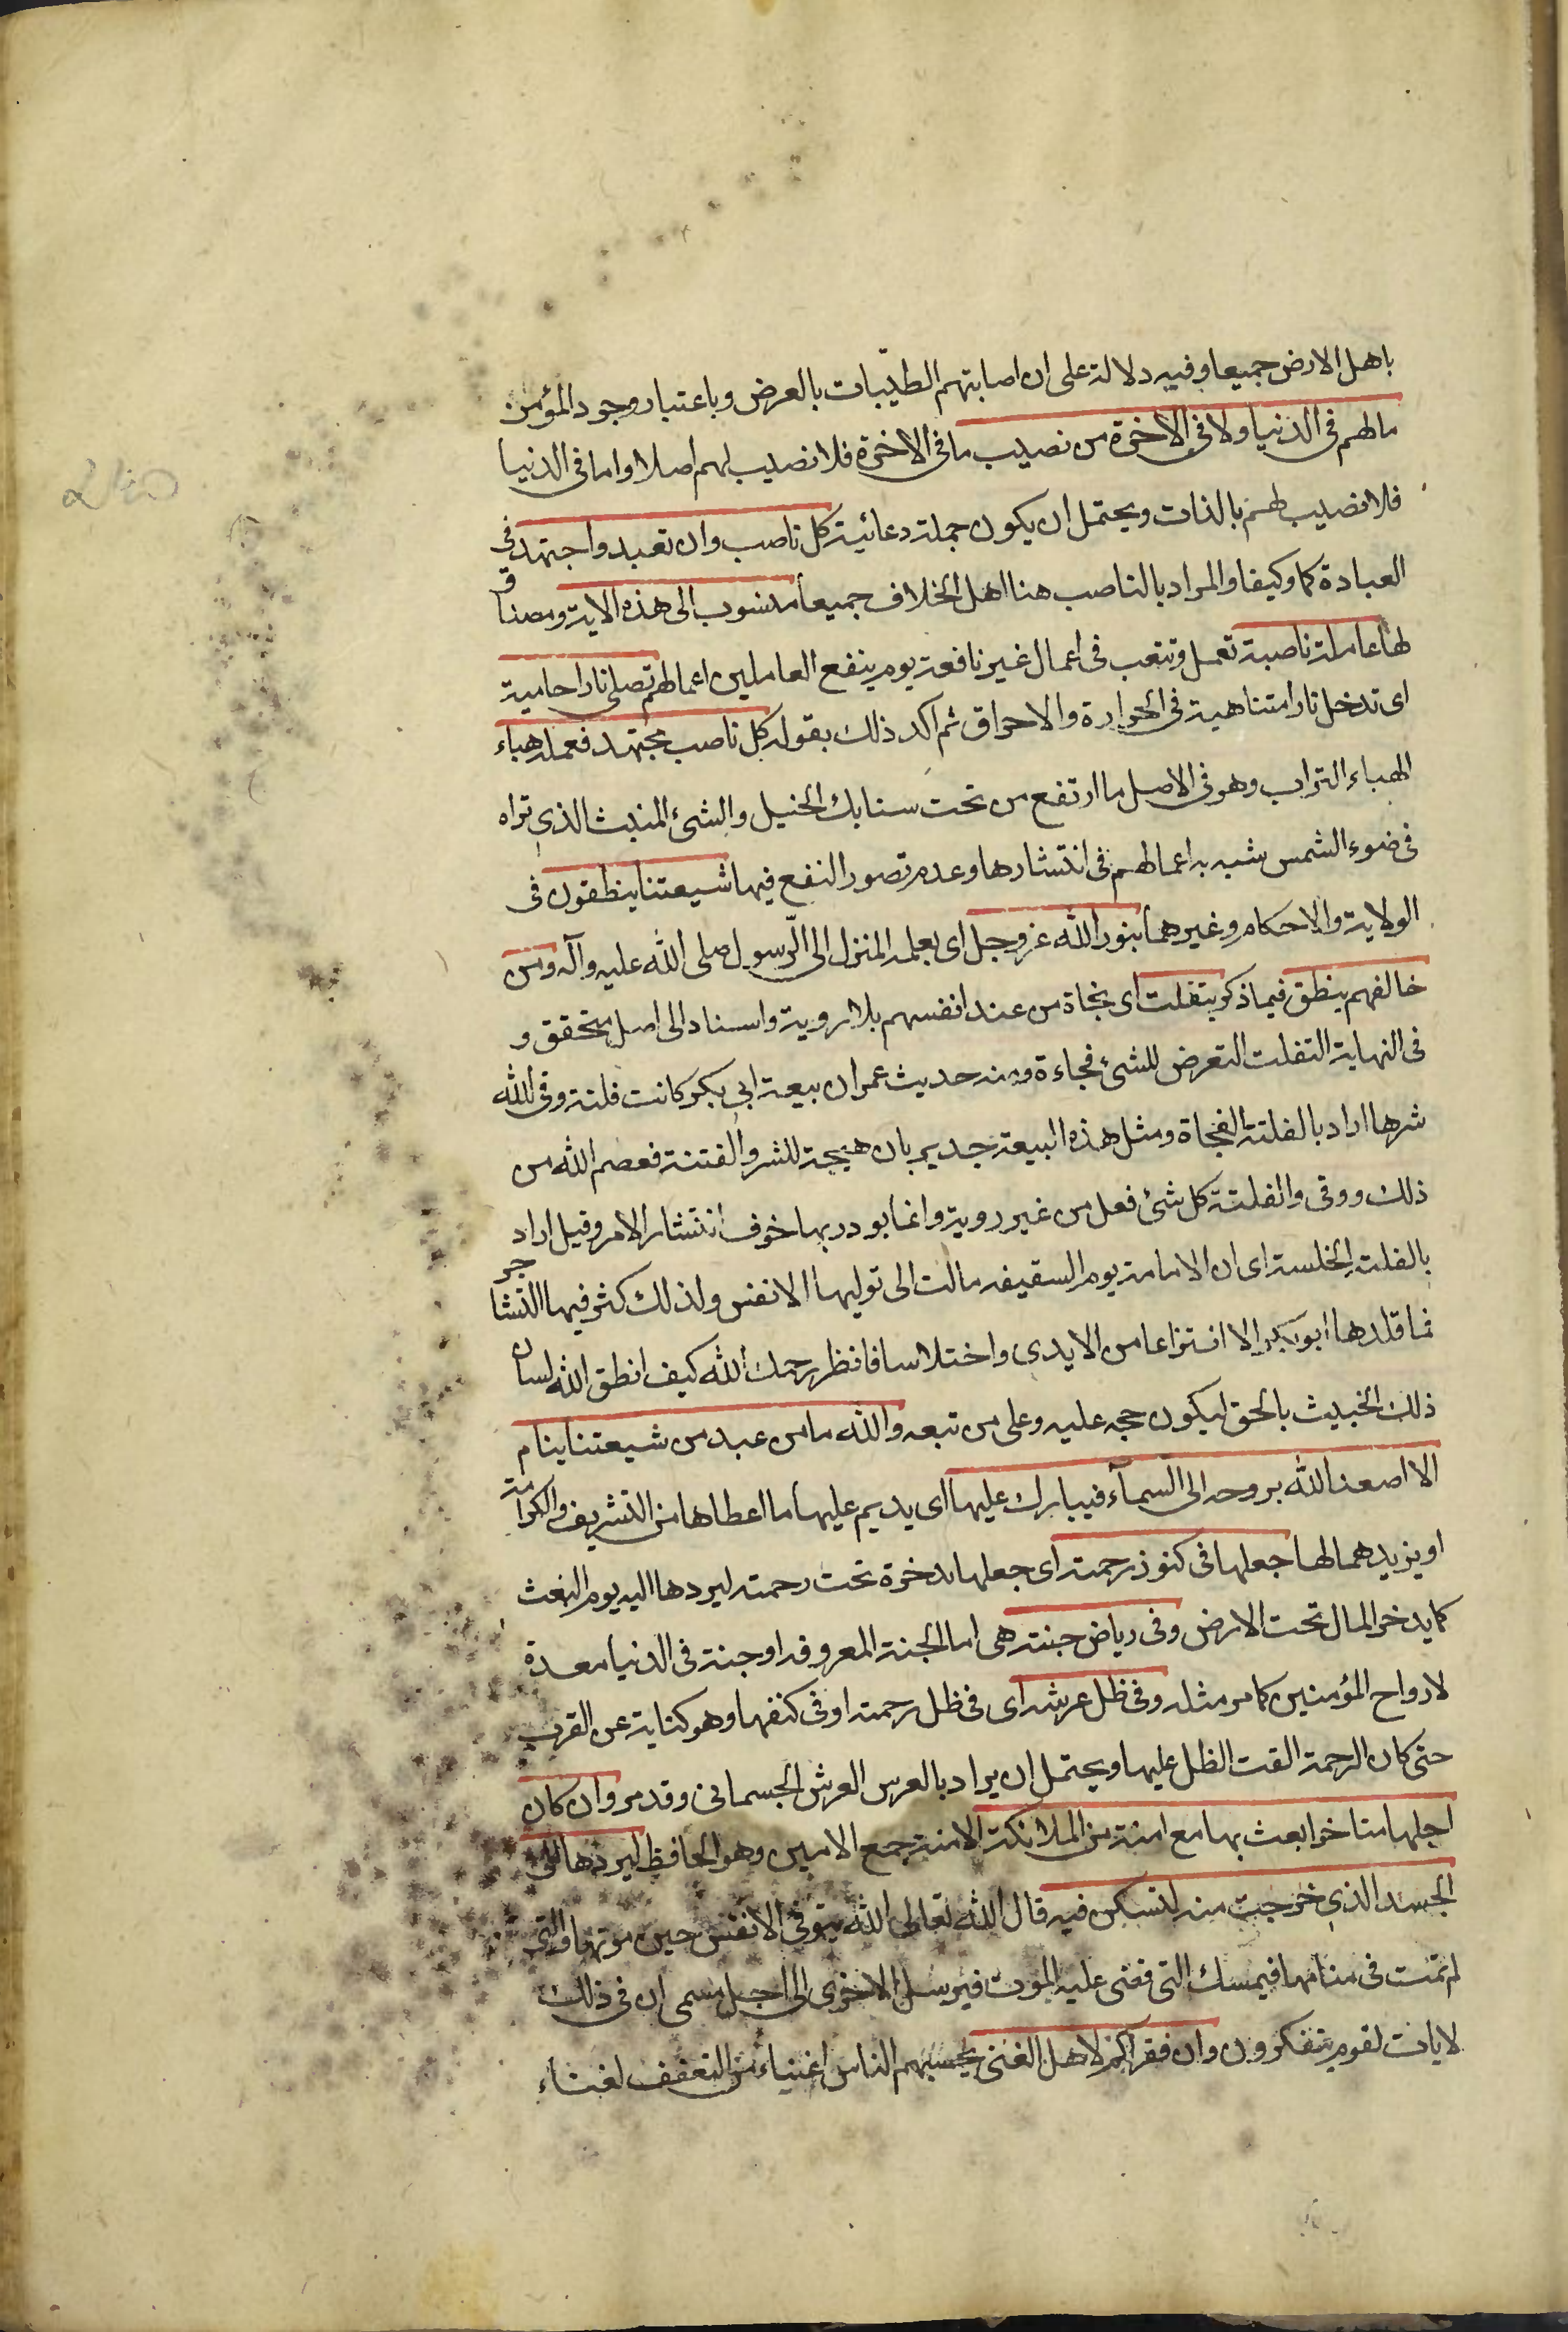 باهل الارض جميعا وفيه دلالة على ان اصابتهم الطيّبات بالعرض وباعتبار وجود المؤمن
مالهم فى الدنيا ولا فى الاخرة من نصيب ما فى الاخرة فلا نصيب لهم اصلا واما فى الدنيا
فلا نصيب لهم بالذات ويحتمل ان يكون جملة دعائية كل ناصب وان تعبد واجتهد فى
العبادة كما وكيفا والمراد بالناصب هنا اهل الخلاف جميعا منسوب الى هذه الاية ومصداق
لها عاملة ناصبة تعمل وتتعب فى اعمال غير نافعة يوم ينفع العاملين اعمالهم تصلى نارا حامية
اى تدخل نارا متناهية فى الحرارة والاحراق ثم اكد ذلك بقوله كل ناصب مجتهد فعمله هباء
الهباء التراب وهو فى الاصل ما ارتفع من تحت سنابك الخيل والشئ المنبث الذى تراه
فى ضوء الشمس شبه به اعمالهم فى انتشارها وعدم تصور النفع فيها شيعتنا ينطقون فى
الولاية والاحكام وغيرهما بنور الله عز وجل اى بعلمه المنزل الى الرّسول صلى الله عليه وآله ومن
خالفهم ينطق فيما ذكر بتفلت اى بخاة من عند انفسهم بلا روية واسناد الى اصل متحقق و
فى النهاية التفلت التعرض للشئ فجاءة ومنه حديث عمر ان بيعة ابى بكر كانت فلتة وقى الله
شرها اراد بالفلتة الفجاة ومثل هذه البيعة جديرم بان هيجة للشر والفتنة فعصم الله من
ذلك ووقى والفلتة كل شئ فعل من غير روية وانما بودر بها خوف انتشار الامر وقيل اراد
بالفلتة الخلسة اى ان الامامة يوم السقيفه مالت الى توليها الانفس ولذلك كثر فيها التشاجر
فما قلدها ابو بكر الا انتزاعا من الايدى واختلاسا فانظر رحمك الله كيف انطق الله لسان
ذلك الخبيث بالحق ليكون حجه عليه وعلى من تبعه والله ما من عبد من شيعتنا ينام
الا اصعد الله بروحه الى السمآء فيبارك عليها اى يديم عليها ما اعطاها من التشريف والكرامة
او يزيدهما لها جعلها فى كنوز رحمته اى جعلها مدخرة تحت رحمته ليردها اليه يوم البعث
كما يدخر المال تحت الارض وفى رياض جنته هى اما الجنة المعروفه او جنة فى الدنيا معدة
لارواح المؤمنين كما مر مثله وفى ظل عرشه اى فى ظل رحمته او فى كنفها وهو كناية عن القرب
حتى كان الرحمة القت الظل عليها ويحتمل ان يراد بالعرس العرش الجسمانى وقد مر وان كان
اجلها متاخرا بعث بها مع امنة من الملائكة الامنة جمع الامين وهو الحافظ ليردها الى
الجسد الذى خرجت منه لتسكن فيه قال الله تعالى الله يتوفى الانفس حين موتها والتى
لم تمت فى منامها فيمسك التى قضى عليه الموت فيرسل الاخرى الى اجل مسمى ان فى ذلك
لايات لقوم يتفكرون وان فقراكم لاهل الغنى يحسبهم الناس اغنياء من التعفف لغناء